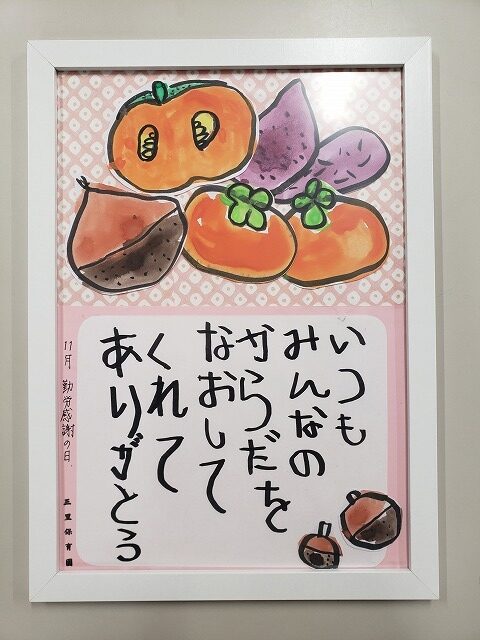 いつも
みんなの
からだを
なおして
くれて
ありがとう
11月 勤労感謝の日、
三里保育園